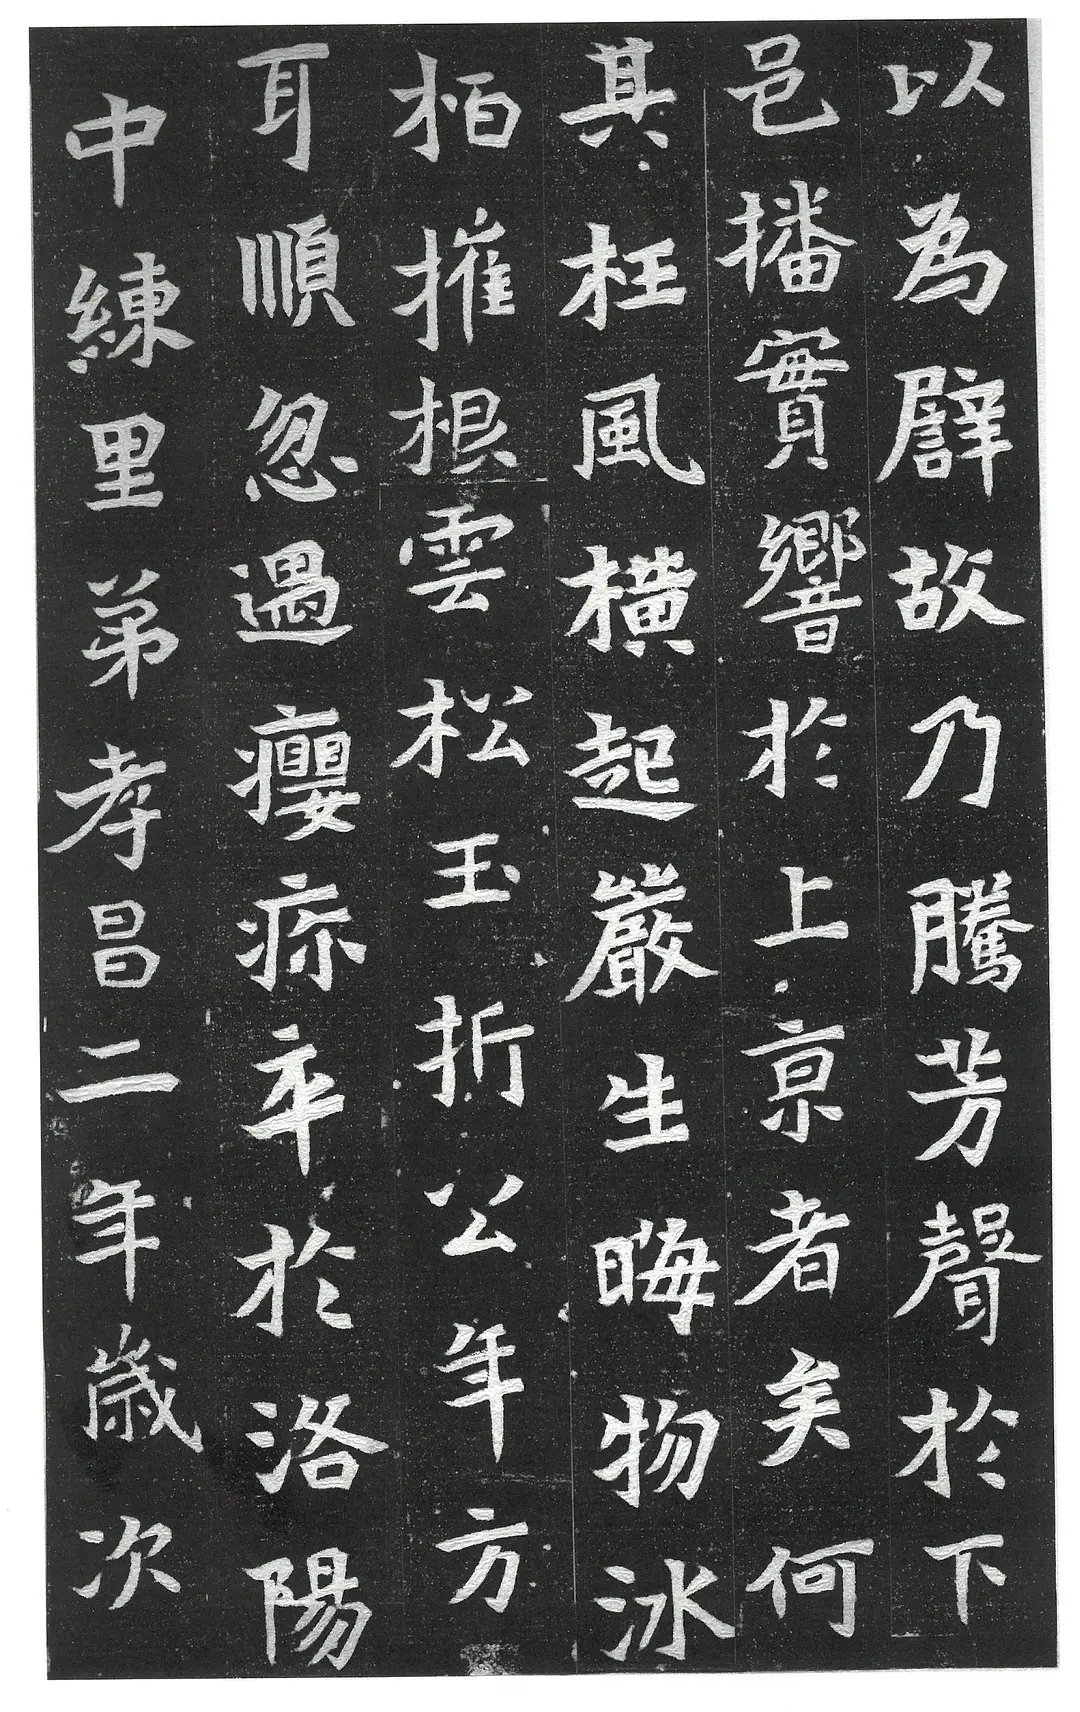 以為譬故乃騰芳聲於下
邑播實響於上京者矣何
其枉風橫起嚴生晦物冰
柏摧根雲松玉折公年方
耳順忽遇癭疹卒於洛陽
中練里弟孝昌二年歲次